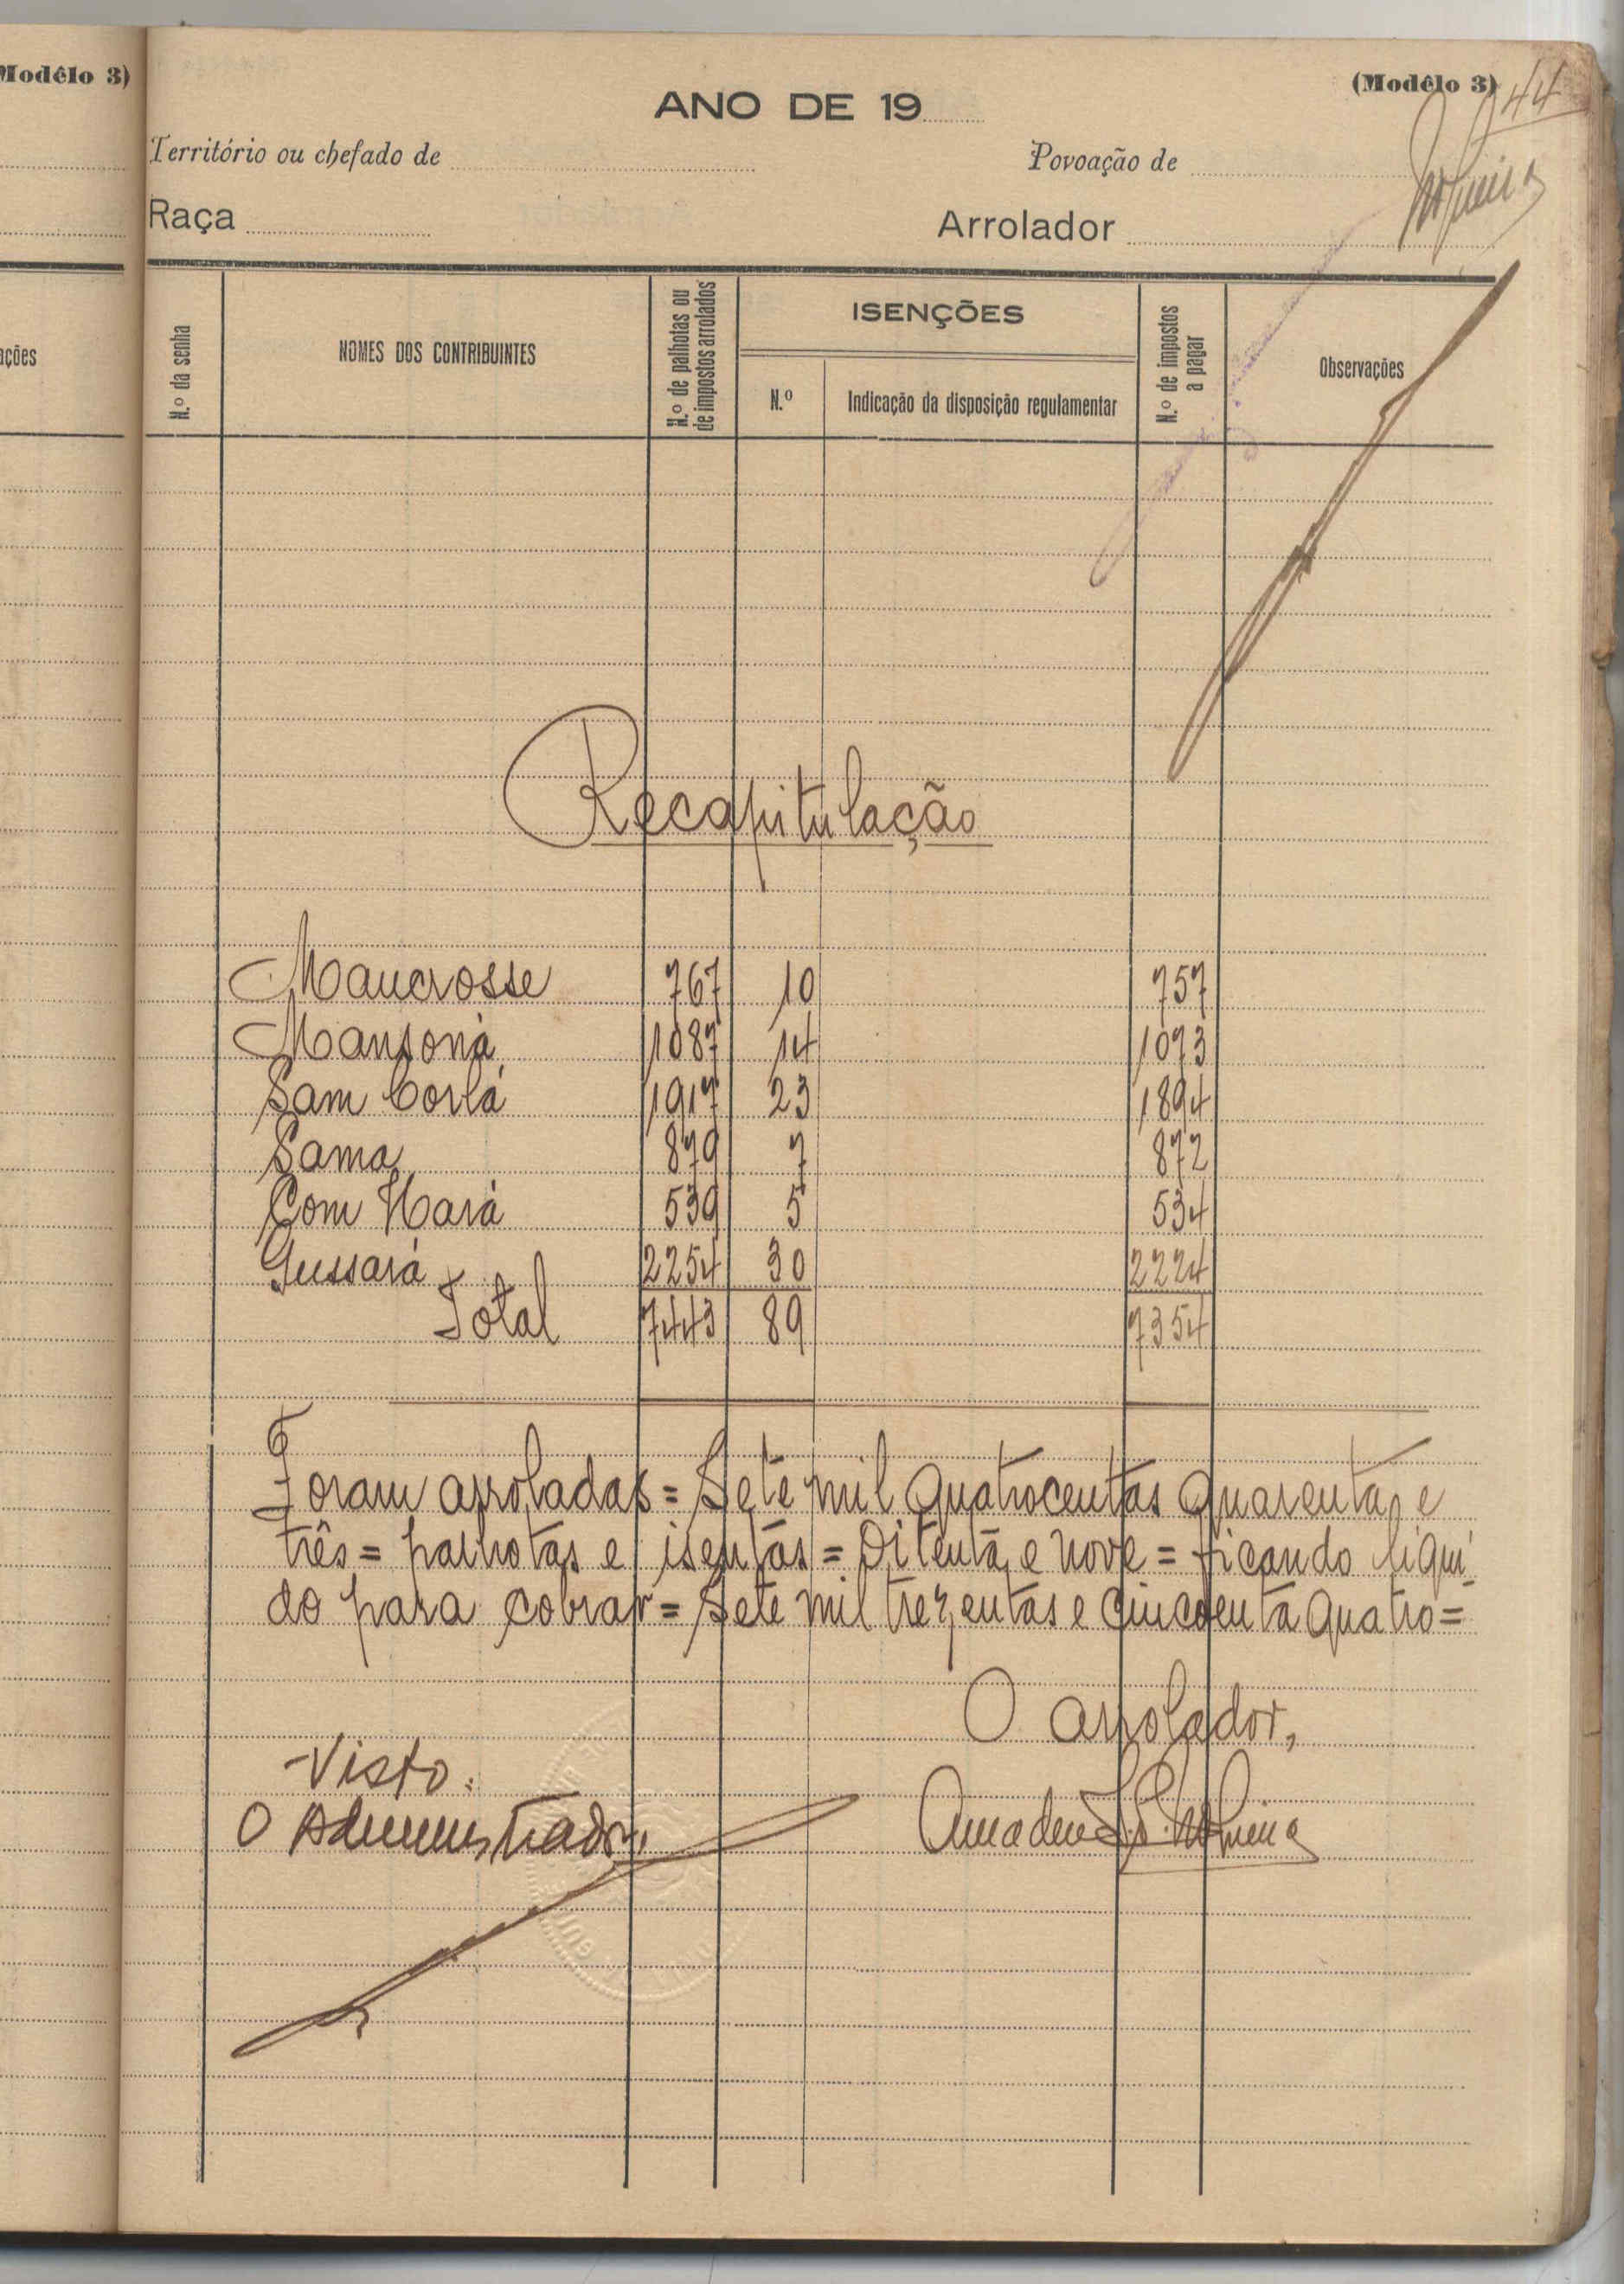 Modêlo 3)
(Modêlo 3)
44
ANO DE 19
Território ou chefado de
Povoação de
Raça
Arrolador
ações
N.º da senha
NOMES DOS CONTRIBUINTES
N.º de palhotas ou
de impostos arrolados
ISENÇÕES
N.º
Indicação da disposição regulamentar
N.º de impostos
a pagar
Observações
Recapitulação
Maucrosse 767 10 757
Mansoná 1087 14 1073
Sam Corlá 1917 23 1894
Sama 879 7 872
Com Hará 539 5 534
Gussará 2254 30 2224
Total 7443 89 7354
Foram arroladas = Sete mil quatrocentas quarenta e
três = palhotas e isentas = Oitenta e nove = ficando liqui-
do para cobrar = Sete mil trezentas e cincoenta quatro =
O arrolador,
Visto:
O Administrador,
Amadeu